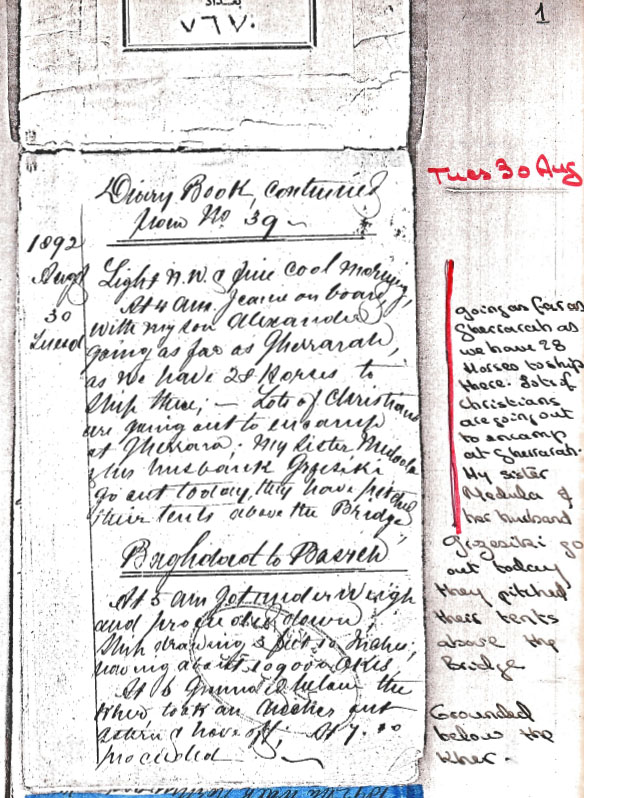 بغداد
٧٦٧٠
1
Tues 30 Aug
Diary Book, continued
from No 39
1892
Augt
30
Tuesd
Light N.W. & fine cool morning,
At 4 am I came on board,
with my son Alexander
going as far as Gherrarah,
as we have 28 Horses to
Ship there; – Lots of Christians
are going out to encamp
at Gherrara; My sister Medoola
& his husband Grzesiki
go out today, they have pitched
their tents above the Bridge,
Baghdad to Basreh
At 5 am got under weigh
and proceeded down,
Ship drawing 3 feet 10 Inches;
having about 109000 Okes
At 6 Grounded below the
Kher, took an anchor out
astern & hove off; At 7.10
proceeded
going as far as
Gherrarah as
we have 28
Horses to ship
there. Lots of
Christians
are going out
to encamp
at Gherrarah.
My sister
Medula &
her husband
Grzesiki go
out today
they pitched
their tents
above the
Bridge
Grounded
below the
Kher.